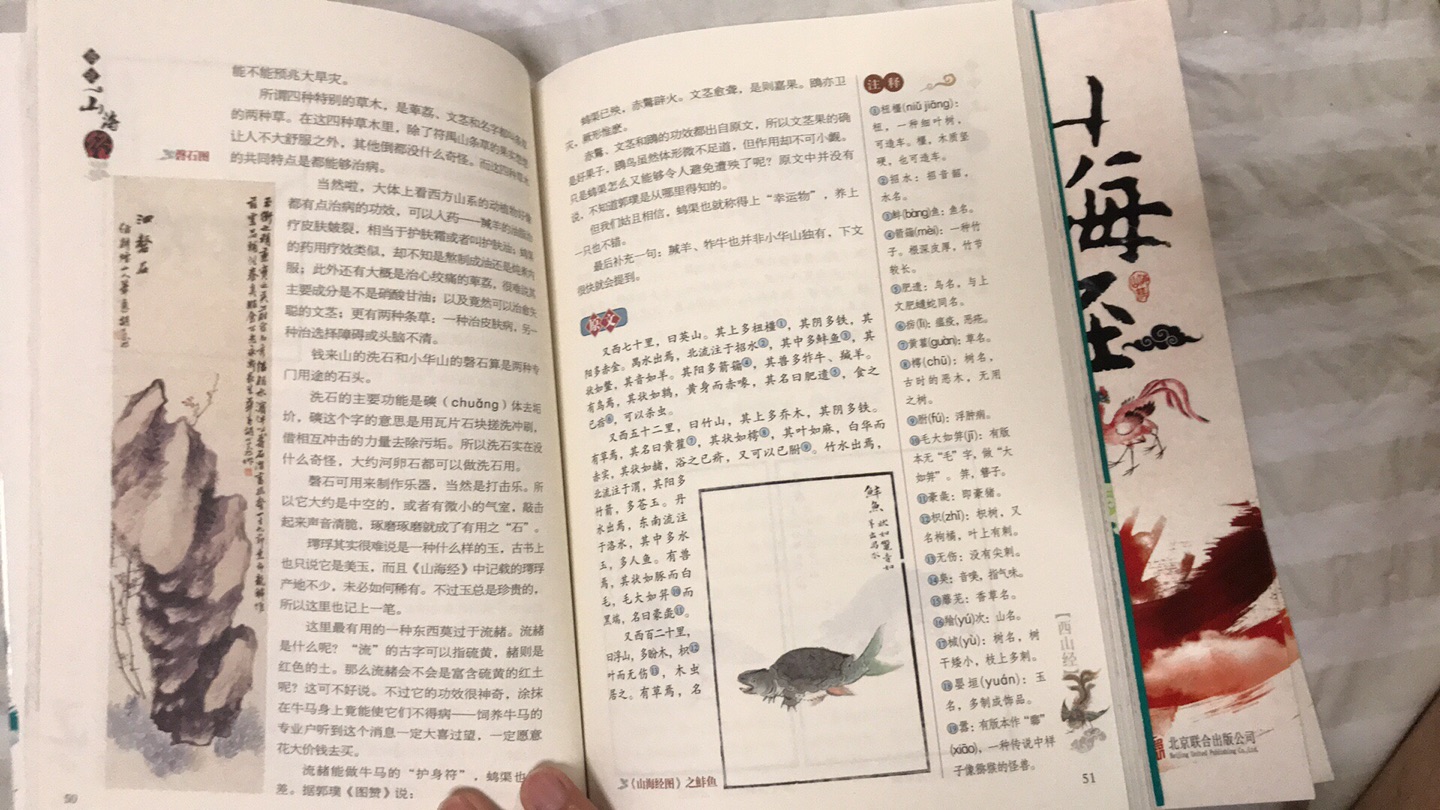 山海
能不能预兆大旱灾。
所谓四种特别的草木，是萆荔、文茎和名字都叫条草
的两种草。在这四种草木里，除了符禺山条草的果实想想
让人不大舒服之外，其他倒都没什么奇怪。而这四种草木
的共同特点是都能够治病。
磬石图
当然啦，大体上看西方山系的动植物好像
都有点治病的功效，可以入药——羬羊的油脂治
疗皮肤皴裂，相当于护肤霜或者叫护肤油；䳋渠
的药用疗效类似，却不知是熬制成油还是炖煮内
服；此外还有大概是治心绞痛的萆荔，很难说其
主要成分是不是硝酸甘油；以及竟然可以治愈失
聪的文茎；更有两种条草：一种治皮肤病，另一
种治选择障碍或头脑不清。
钱来山的洗石和小华山的磬石算是两种专
门用途的石头。
洗石的主要功能是磢（chuǎng）体去垢
圿，磢这个字的意思是用瓦片石块搓洗冲刷，
借相互冲击的力量去除污垢。所以洗石实在没
什么奇怪，大约河卵石都可以做洗石用。
磬石可用来制作乐器，当然是打击乐。所
以它大约是中空的，或者有微小的气室，敲击
起来声音清脆，琢磨琢磨就成了有用之“石”。
㻬琈其实很难说是一种什么样的玉，古书上
也只说它是美玉，而且《山海经》中记载的㻬琈
产地不少，未必如何稀有。不过玉总是珍贵的，
所以这里也记上一笔。
这里最有用的一种东西莫过于流赭。流赭
是什么呢？“流”的古字可以指硫黄，赭则是
红色的土。那么流赭会不会是富含硫黄的红土
呢？这可不好说。不过它的功效很神奇，涂抹
在牛马身上竟能使它们不得病——饲养牛马的
专业户听到这个消息一定大喜过望，一定愿意
花大价钱去买。
流赭能做牛马的“护身符”，䳋渠也
差。据郭璞《图赞》说：
50
䳋渠已殃，赤鷩辟火。文茎愈聋，是则嘉果。鴖亦卫
灾，厥形惟麽。
赤鷩、文茎和鴖的功效都出自原文，所以文茎果的确
是好果子，鴖鸟虽然体形微不足道，但作用却不可小觑。
只是䳋渠怎么又能够令人避免遭殃了呢？原文中并没有
说，不知道郭璞是从哪里得知的。
但我们姑且相信，䳋渠也就称得上“幸运物”，养上
一只也不错。
最后补充一句：羬羊、㸲牛也并非小华山独有，下文
很快就会提到。
原文
又西七十里，曰英山。其上多杻橿①，其阴多铁，其
阳多赤金。禺水出焉，北流注于招水②，其中多䱻鱼③，其
状如鳖，其音如羊。其阳多箭䉋④，其兽多㸲牛、羬羊。
有鸟焉，其状如鹑，黄身而赤喙，其名曰肥遗⑤，食之
已疠⑥，可以杀虫。
又西五十二里，曰竹山，其上多乔木，其阴多铁。
有草焉，其名曰黄雚⑦，其状如樗⑧，其叶如麻，白华而
赤实，其状如赭，浴之已疥，又可以已胕⑨。竹水出焉，
北流注于渭，其阳多
竹箭，多苍玉。丹
水出焉，东南流注
于洛水，其中多水
玉，多人鱼。有兽
焉，其状如豚而白
毛，毛大如笄⑩而
黑端，名曰豪彘⑪。
又西百二十里，
曰浮山，多盼木，枳⑫
叶而无伤⑬，木虫
居之。有草焉，名
《山海经图》之䱻鱼
注释
①杻橿(niǔ jiāng)：
杻，一种细叶树，
可造车。橿，木质坚
硬，也可造车。
②招水：招音韶，
水名。
③䱻(bàng)鱼：鱼名。
④箭䉋(mèi)：一种竹
子。根深皮厚，竹节
较长。
⑤肥遗：鸟名，与上
文肥蠝蛇同名。
⑥疠(lì)：瘟疫，恶疮。
⑦黄雚(guàn)：草名。
⑧樗(chū)：树名，
古时的恶木，无用
之树。
⑨胕(fú)：浮肿病。
⑩毛大如笄(jī)：有版
本无“毛”字，做“大
如笄”。笄，簪子。
⑪豪彘：即豪猪。
⑫枳(zhǐ)：枳树，又
名枸橘，叶上有刺。
⑬无伤：没有尖刺。
⑭臭：音嗅，指气味。
⑮蘼芜：香草名。
⑯羭(yú)次：山名。
⑰棫(yù)：树名，树
干矮小，枝上多刺。
⑱婴垣(yuán)：玉
名，多制成饰品。
⑲嚣：有版本作“嚻”
(xiāo)，一种传说中样
子像猕猴的怪兽。
［西山经］
51
海
经
北京联合出版公司
Beijing United Publishing Co.,Ltd.